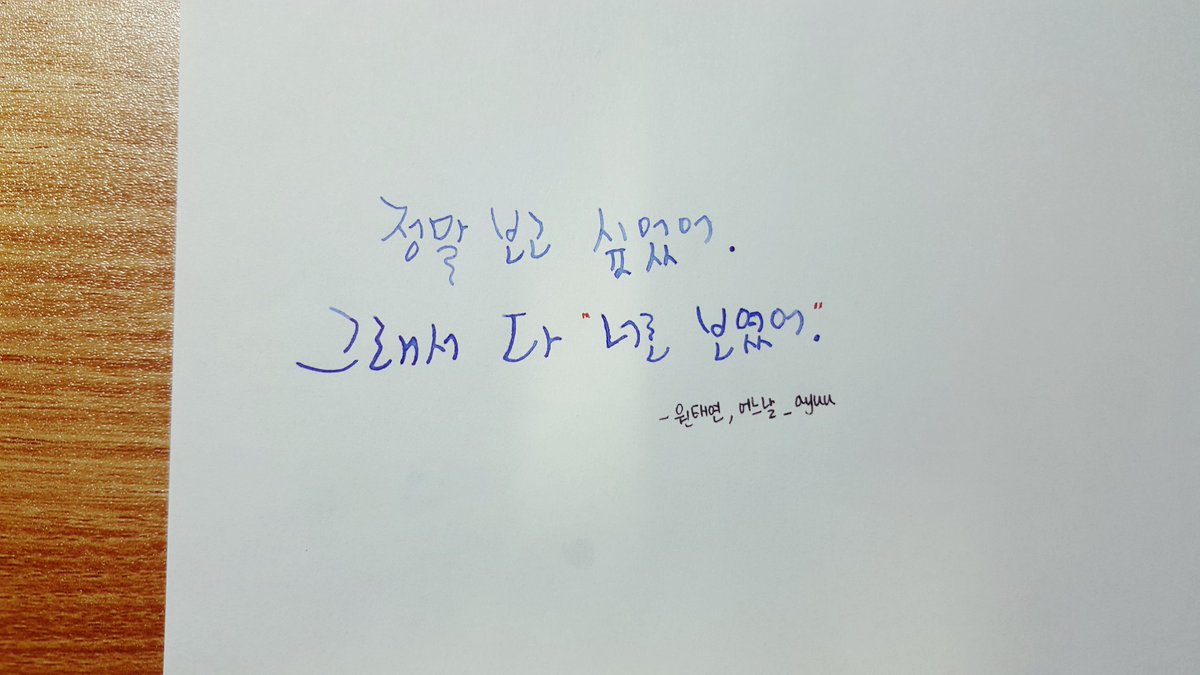 정말 보고 싶었어.
그래서 다 "너로 보였어."
- 원태연, 어느날 _ ayuu